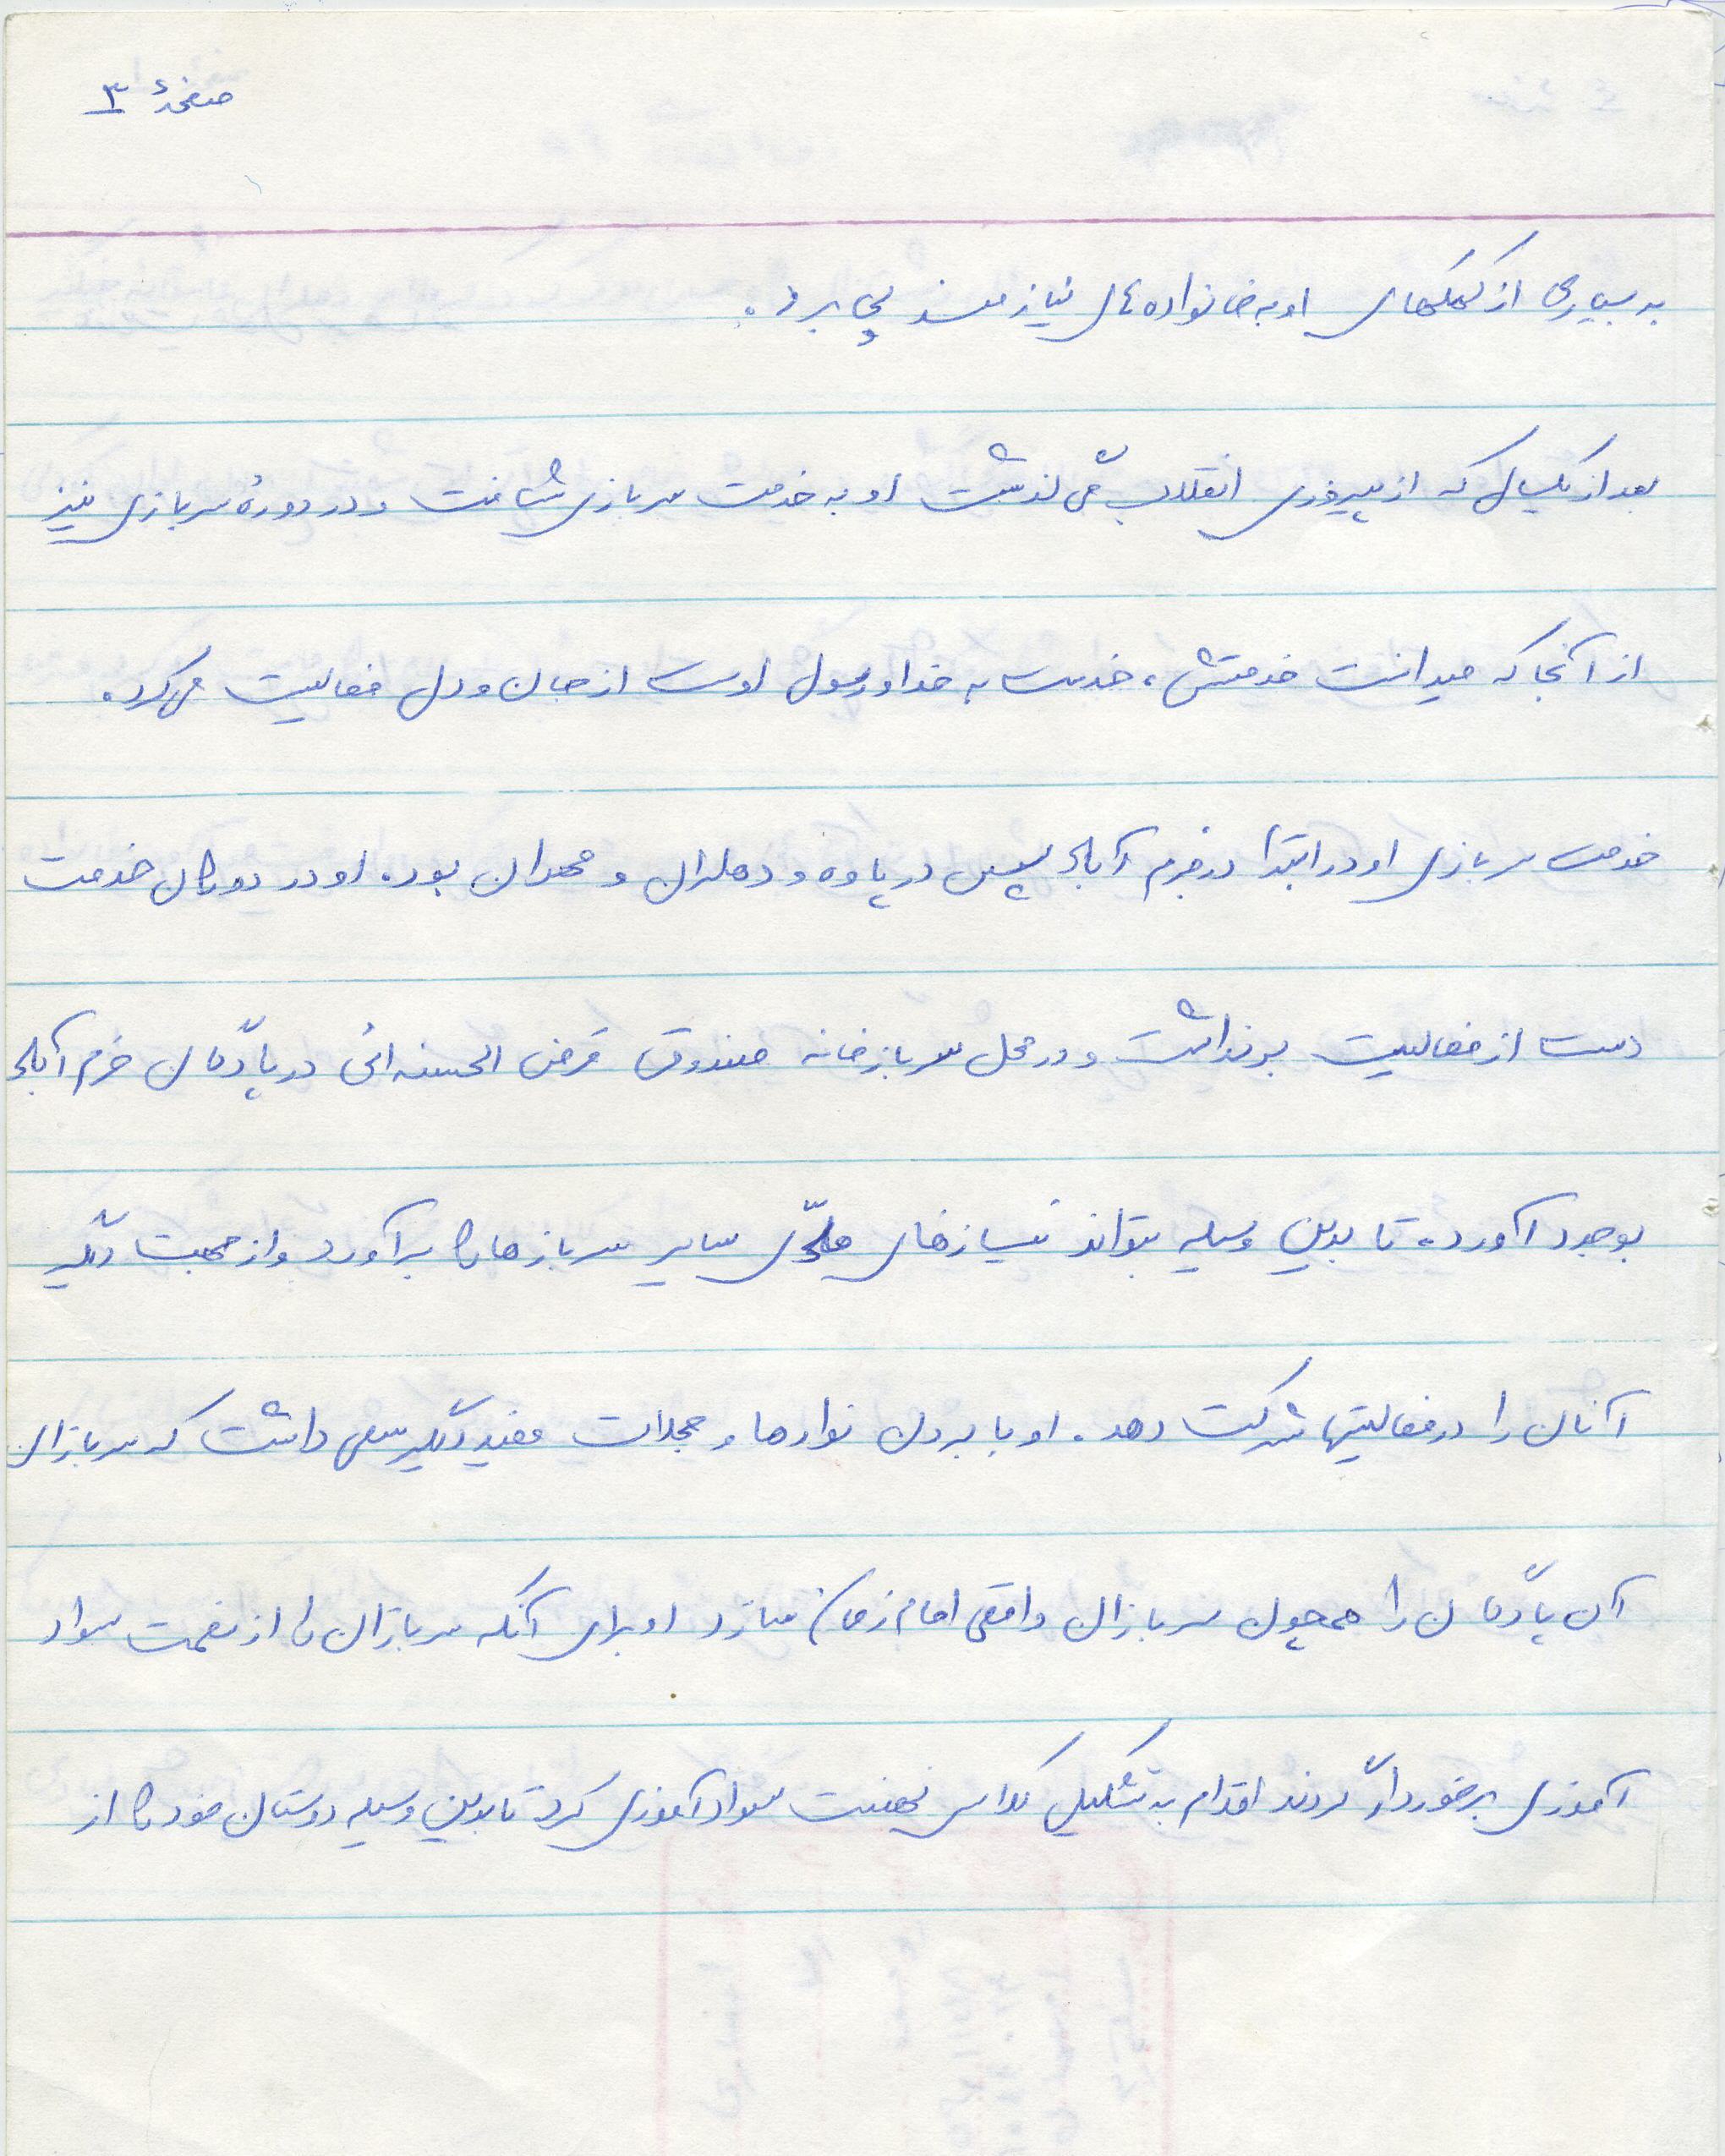 صفحهٔ ۳
به بسیاری از کمکهای او به خانواده های نیازمند پی برد.
بعد از یکسال که از پیروزی انقلاب می گذشت او به خدمت سربازی شتافت و در دورهٔ سربازی نیز
از آنجا که میدانست خدمتش، خدمت به خدا و رسول اوست از جان و دل فعالیت می کرد.
خدمت سربازی او در ابتدا در خرم آباد سپس در پاوه و دهلران و مهران بود. او در دوران خدمت
دست از فعالیت برنداشت و در محل سربازخانه صندوق قرض الحسنه ائی در پادگان خرم آباد
بوجود آورد، تا بدین وسیله بتواند نیازهای سایر سربازها را برآورد و از محبت دیگر
آنان را در فعالیتها شرکت دهد. او با بردن نوارها و مجلات مفید دیگر سعی داشت که سربازان
آن پادگان را همچون سربازان واقعی امام زمان سازد او برای آنکه سربازان را از نعمت سواد
آموزی برخوردار گردند اقدام به تشکیل کلاس نهضت سواد آموزی کرد تا بدین وسیله دوستان خود را از